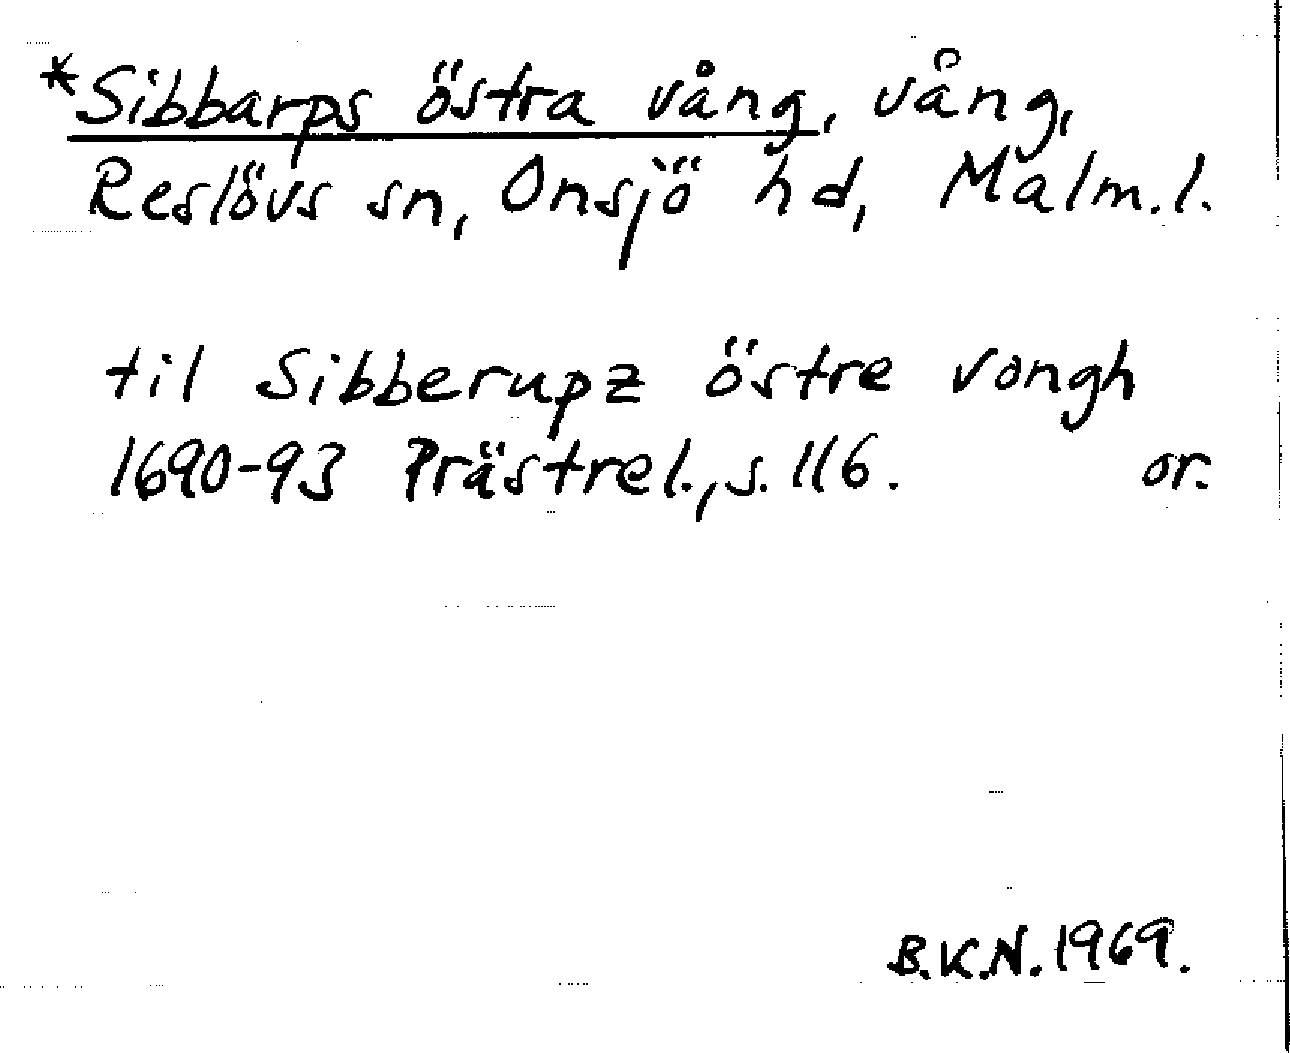 *Sibbarps östra vång, vång,
Reslövs sn, Onsjö hd, Malm.l.
til Sibberupz östre vongh
1690-93 Prästrel., s. 116. or.
B.K.N. 1969.